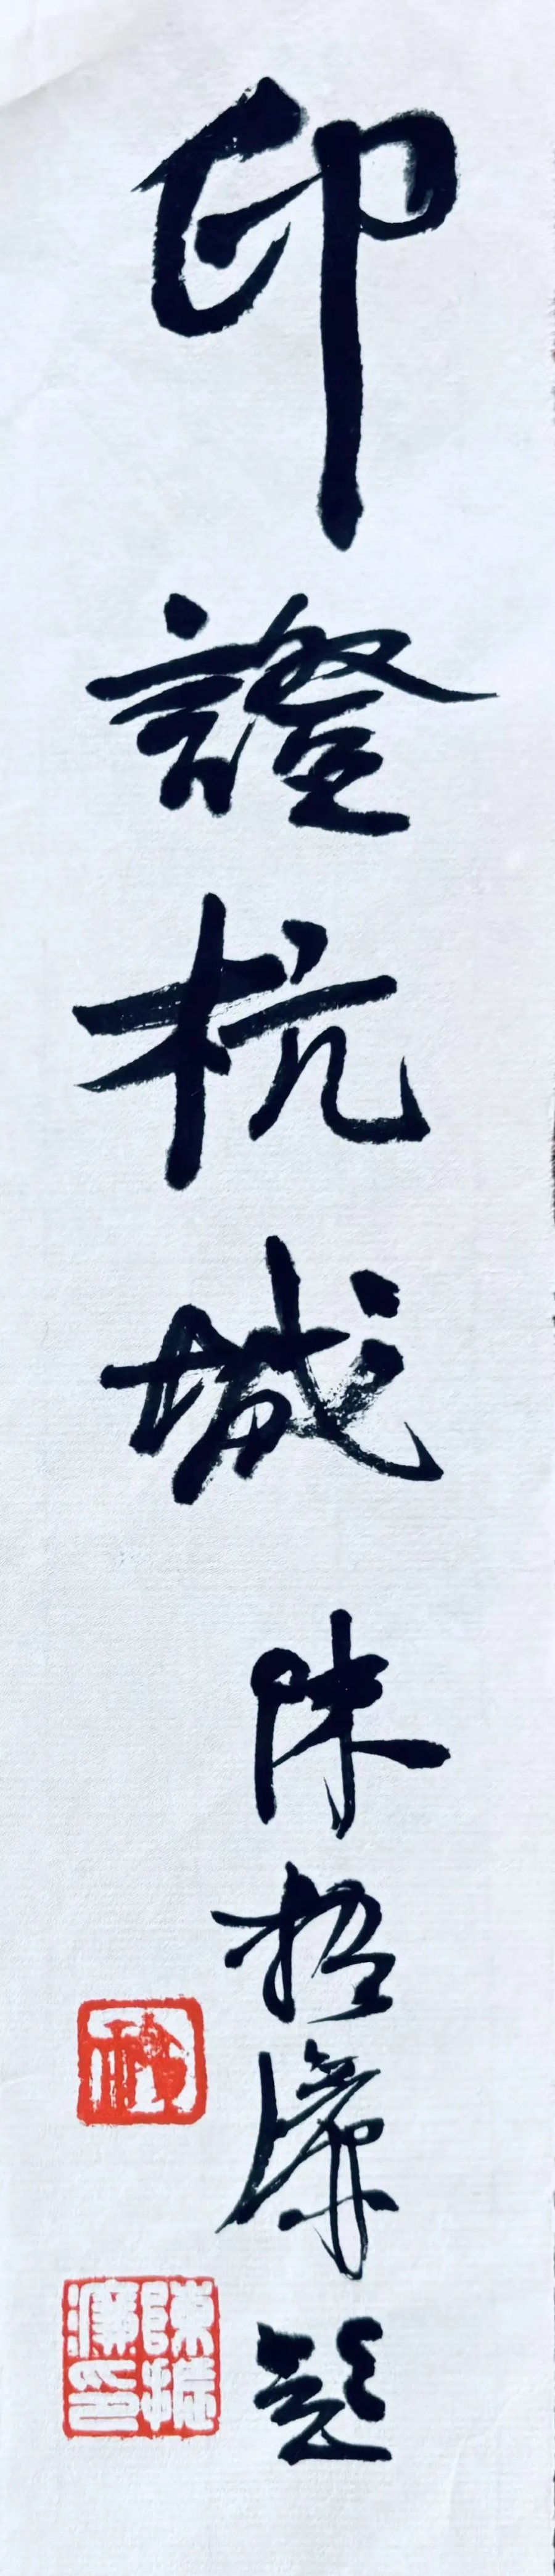 印證杭城
陳振濂題
陳振濂印